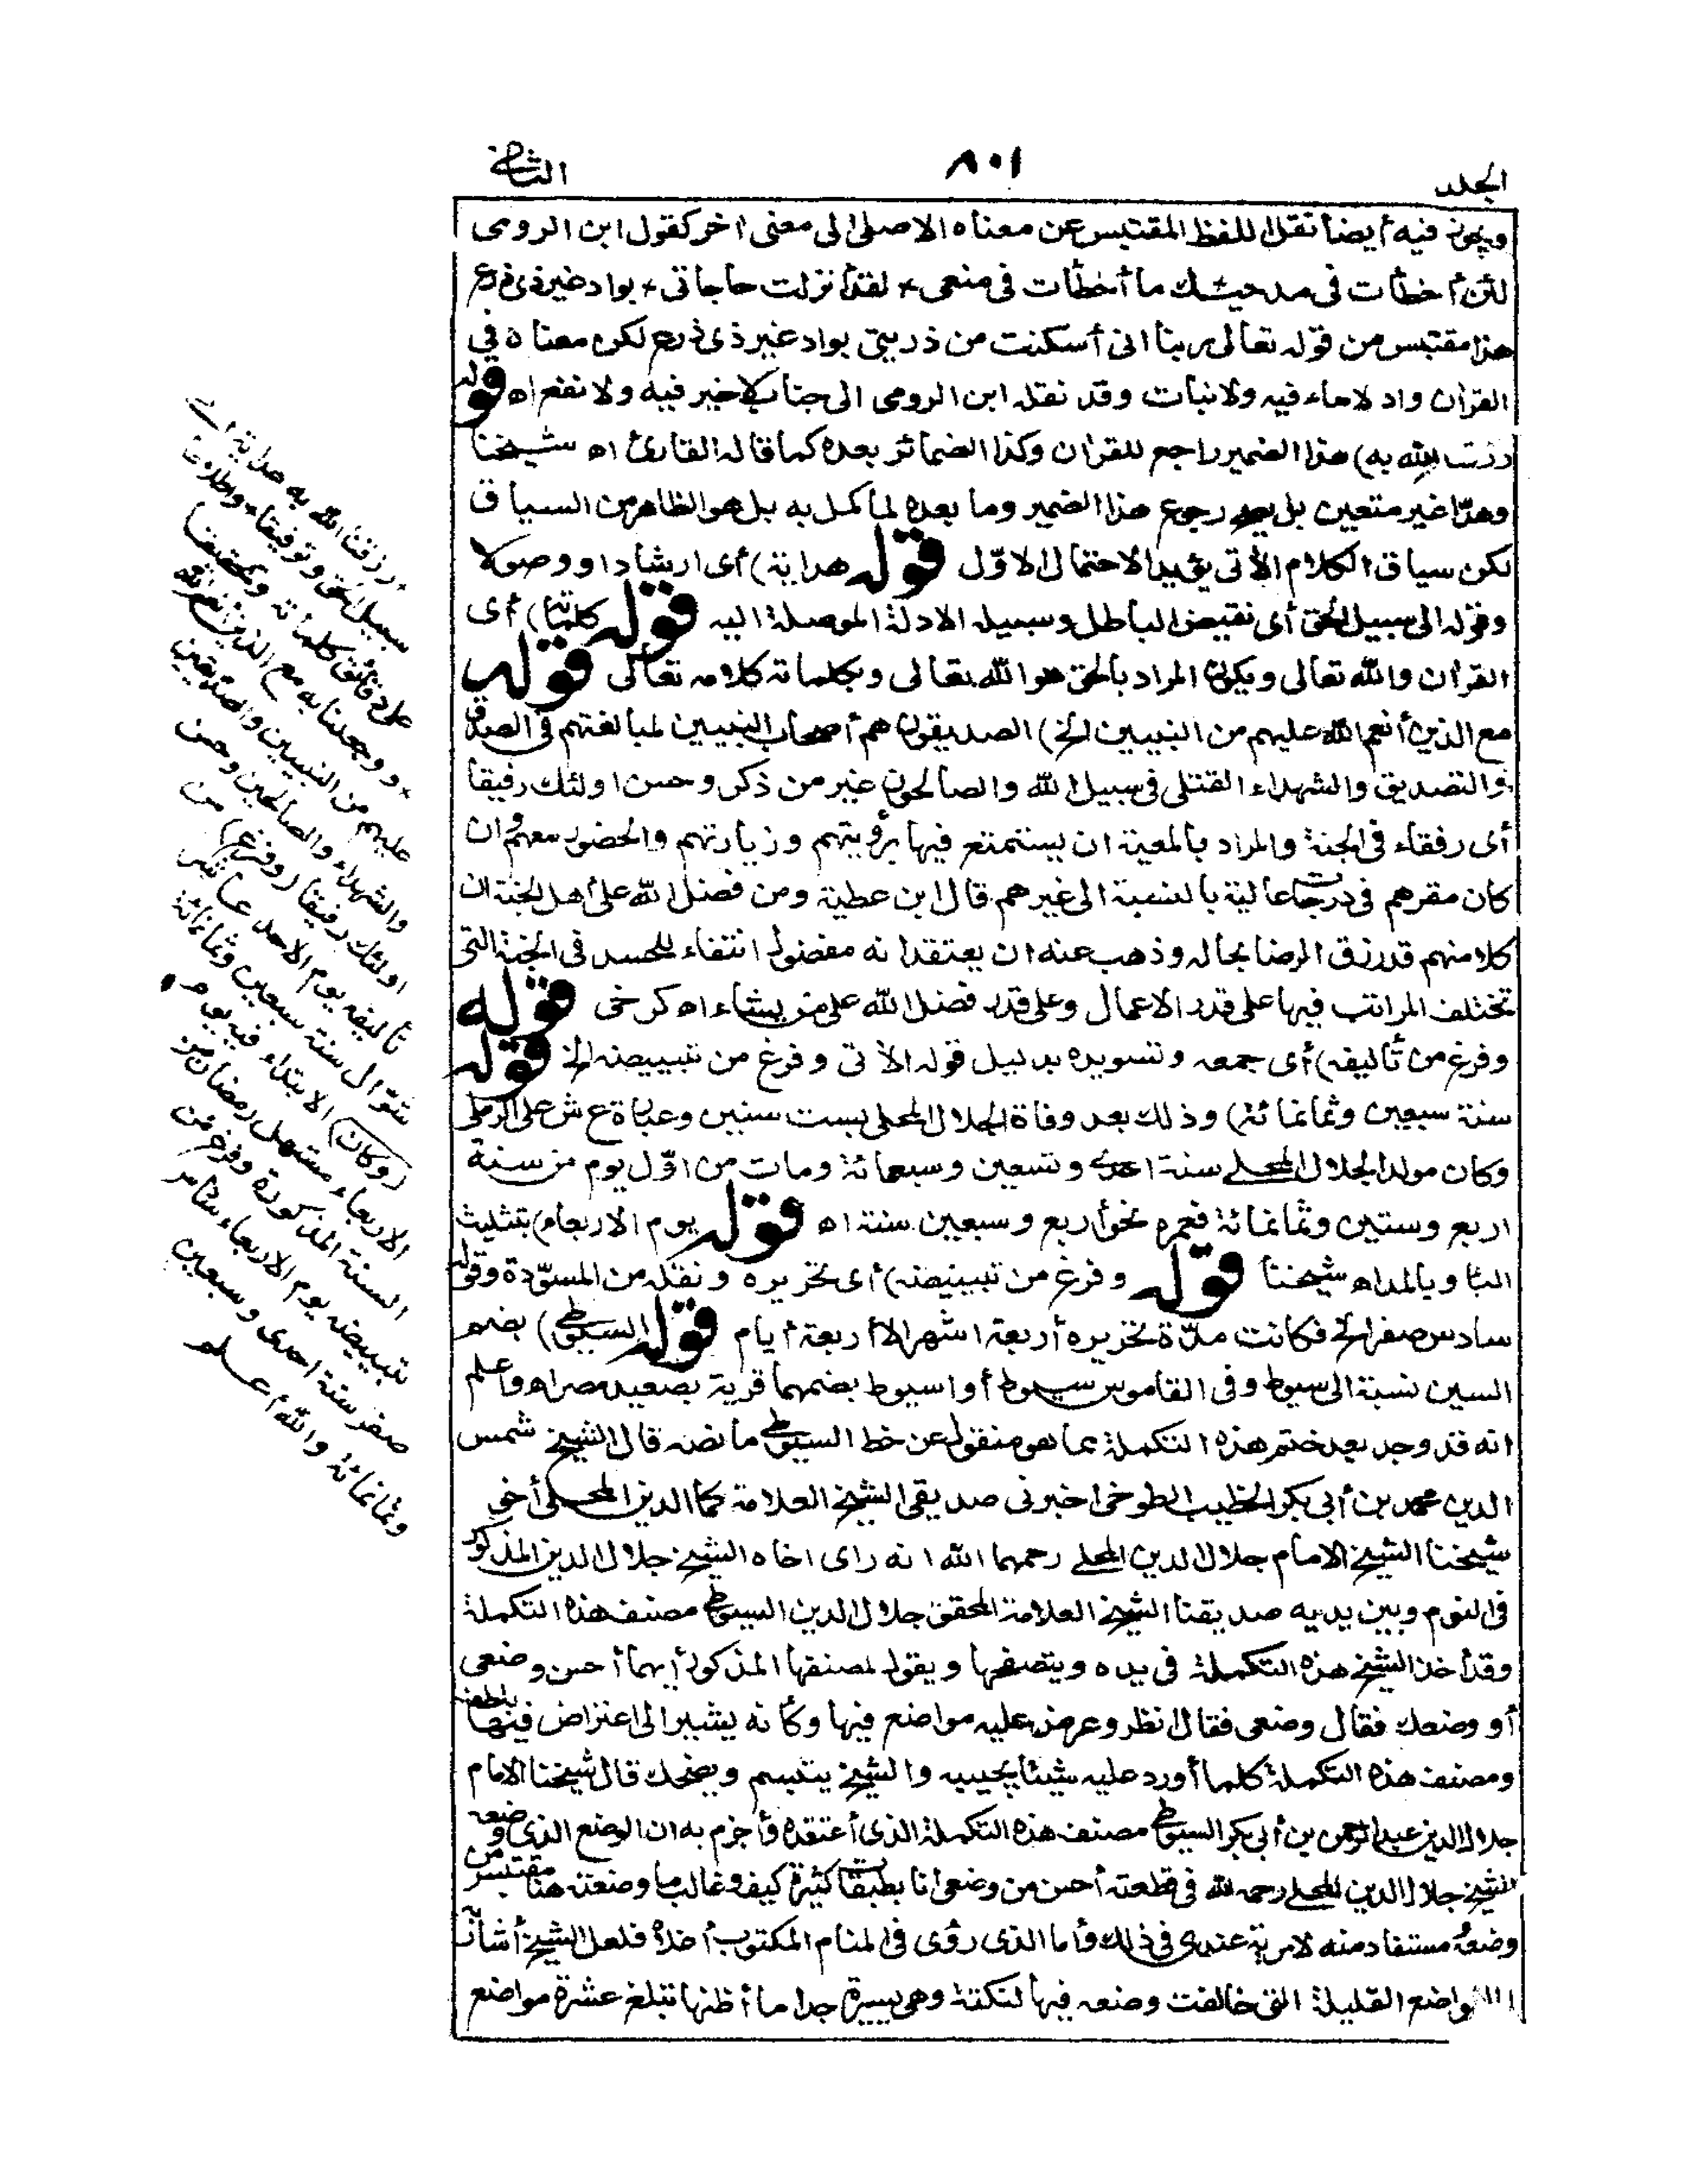 الجلد
٨٠١
الثانى
ويجوز فيه أيضا نقل اللفظ المقتبس عن معناه الاصلى الى معنى اخر كقول ابن الرومى
لئن أخطأت فى مدحيك ما أخطأت فى منعى * لقد أنزلت حاجاتى * بواد غير ذى زرع
هذا مقتبس من قوله تعالى ربنا انى أسكنت من ذريتى بواد غير ذى زرع لكن معناه فى
القرأن واد لا ماء فيه ولا نبات وقد نقله ابن الرومى الى جناب لا خير فيه ولا نفع اه قوله
رزقنا الله به) هذا الضمير راجع للقرأن وكذا الضمائر بعده كما قاله القارئ اه شيخنا
وهذا غير متعين بل يصح رجوع هذا الضمير وما بعده لما كمل به بل هو الظاهر من السياق
لكن سياق الكلام الأتى يؤيد الاحتمال الاوّل قوله هداية) أى ارشادا ووصولا
وقوله الى سبيل الحق أى نقيض الباطل وسبيله الادلة الموصلة اليه قوله كلماته) أى
القرأن والله تعالى ويكون المراد بالحق هو الله تعالى وبكلماته كلامه تعالى قوله
مع الذين أنعم الله عليهم من النبيين الخ) الصديقون هم أصحاب النبيين لمبالغتهم فى الصدق
والتصديق والشهداء القتلى فى سبيل الله والصالحون غير من ذكر وحسن اولئك رفيقا
أى رفقاء فى الجنة والمراد بالمعية ان يستمتع فيها برؤيتهم وزيارتهم والحضور معهم وان
كان مقرهم فى درجات عالية بالنسبة الى غيرهم قال ابن عطية ومن فضل الله على أهل الجنة ان
كلا منهم قد رزق الرضا بحاله وذهب عنه ان يعتقد انه مفضول انتفاء للحسد فى الجنة التى
تختلف المراتب فيها على قدر الاعمال وعلى قدر فضل الله على من يشاء اه كرخى قوله
وفرغ من تأليفه) أى جمعه وتسويده بدليل قوله الأتى وفرغ من تبييضه الخ قوله
سنة سبعين وثمانمائة) وذلك بعد وفاة الجلال المحلى بست سنين وعبارة ع ش على الرملى
وكان مولد الجلال المحلى سنة احدى وتسعين وسبعمائة ومات من اوّل يوم من سنة
اربع وستين وثمانمائة فعمره نحو أربع وسبعين سنة اه قوله يوم الاربعاء) بتثليث
البا وبالمد اه شيخنا قوله وفرغ من تبييضه) أى تحريره ونقله من المسوّدة وقوله
سادس صفر الخ فكانت مدّة تحريره أربعة اشهر الا أربعة أيام قوله السيوطى) بضم
السين نسبة الى سيوط وفى القاموس سيوط أو اسيوط بضمهما قرية بصعيد مصر اه واعلم
انه قد وجد بعد ختم هذه التكملة مما هو منقول عن خط السيوطى ما نصه قال الشيخ شمس
الدين محمد بن أبى بكر الخطيب الطوخى اخبرنى صديقى الشيخ العلامة كمال الدين المحلى أخى
شيخنا الشيخ الامام جلال الدين المحلى رحمهما الله انه راى اخاه الشيخ جلال الدين المذكور
فى النوم وبين يديه صديقنا الشيخ العلامة المحقق جلال الدين السيوطى مصنف هذه التكملة
وقد أخذ الشيخ هذه التكملة فى يده ويتصفحها ويقول لمصنفها المذكور أيهما أحسن وضعى
أو وضعك فقال وضعى فقال انظر وعرض عليه مواضع فيها وكأنه يشير الى اعتراض فيها بلطف
ومصنف هذه التكملة كلما أورد عليه شيئا يجيبه والشيخ يتبسم ويضحك قال شيخنا الامام
جلال الدين عبد الرحمن بن أبى بكر السيوطى مصنف هذه التكملة الذى أعتقده وأجزم به ان الوضع الذى وضعه
الشيخ جلال الدين المحلى رحمه الله فى قطعته أحسن من وضعى انا بطبقات كثيرة كيف وغالب ما وضعته هنا مقتبس من
وضعه ومستفاد منه لا مرية عندى فى ذلك وأما الذى رؤى فى المنام المكتوب أخذه فلعل الشيخ أشار به
المواضع القليلة التى خالفت وضعه فيها لنكتة وهى يسيرة جدا ما أظنها تبلغ عشرة مواضع
* رزقنا الله به هداية الى
سبيل الحق وتوفيقا * واطلاعا
على دقائق كلماته وتحقيقا
* وجعلنا به مع الذين أنعم الله
عليهم من النبيين والصديقين
والشهداء والصالحين وحسن
اولئك رفيقا (وفرغ) من
تأليفه يوم الاحد عاشر
شوّال سنة سبعين وثمانمائة
(وكان) الابتداء فيه يوم
الاربعاء مستهل رمضان من
السنة المذكورة وفرغ من
تبييضه يوم الاربعاء سادس
صفر سنة احدى وسبعين
وثمانمائة والله أعلم